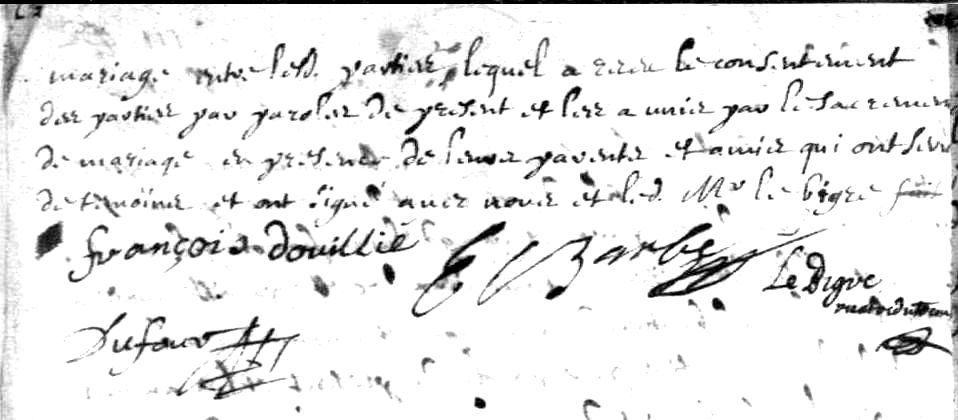 mariage entre lesd. parties lequel a receu le consentement
des parties par paroles de present et les a unies par le sacremen
de mariage en presence de leurs parents et amies qui ont servi
de temoins et ont signé avec nous et led. Mr le bigre
françois douillié Barbe Le Bigre
Dufour